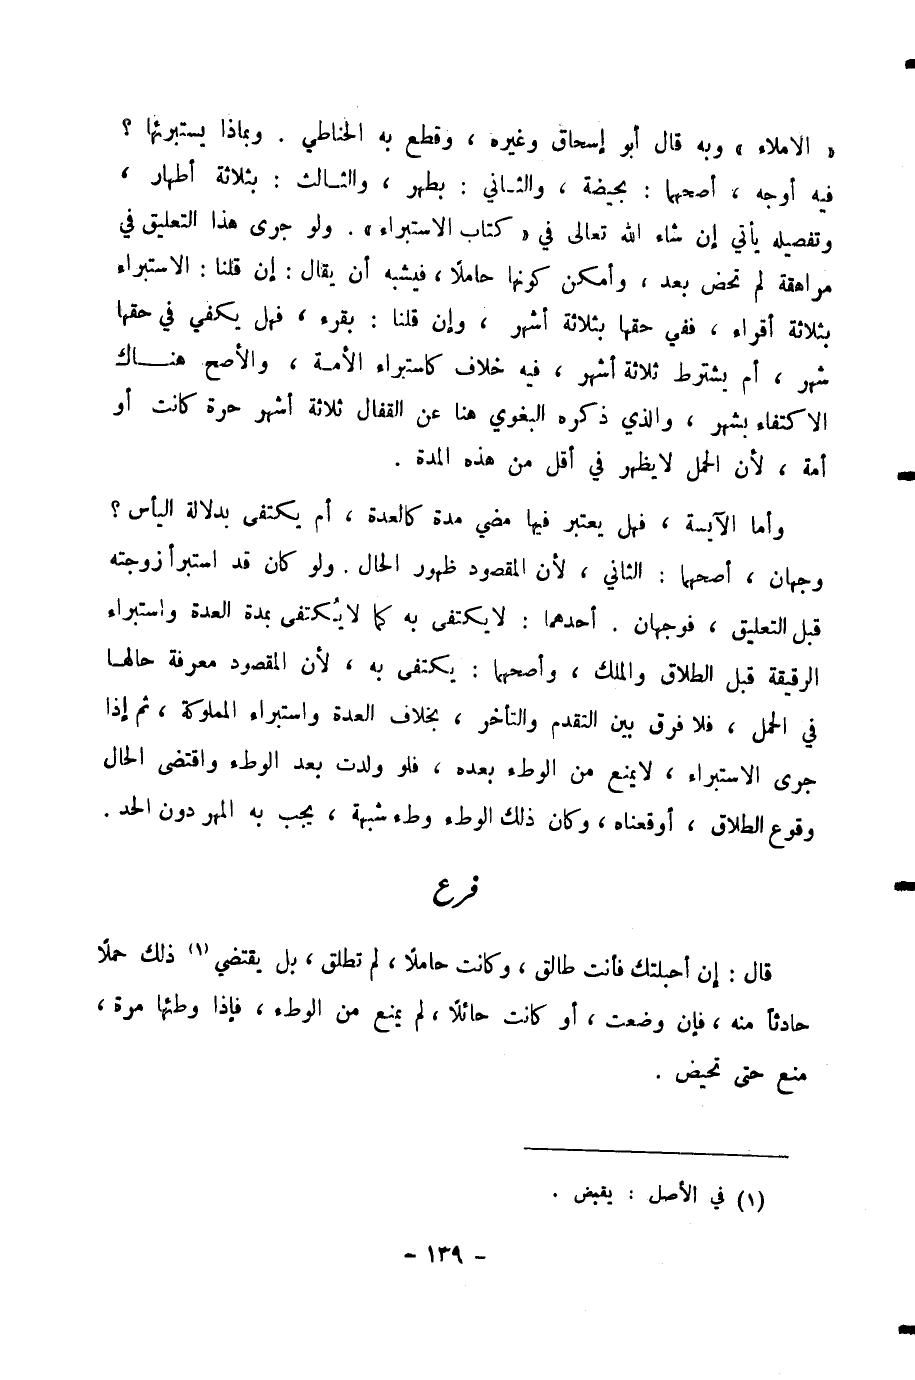 « الاملاء » وبه قال أبو إسحاق وغيره ، وقطع به الحناطي . وبماذا يستبرئها ؟
فيه أوجه ، أصحها : بحيضة ، والثـاني : بطهر ، والثـالث : بثلاثة أطهار ،
وتفصيله يأتي إن شاء الله تعالى في « كتاب الاستبراء » . ولو جرى هذا التعليق في
مراهقة لم تحض بعد ، وأمكن كونها حاملًا ، فيشبه أن يقال : إن قلنا : الاستبراء
بثلاثة أقراء ، ففي حقها بثلاثة أشهر ، وإن قلنا : بقرء ، فهل يكفي في حقها
شهر ، أم يشترط ثلاثة أشهر ، فيه خلاف كاستبراء الأمـة ، والأصح هنـــاك
الاكتفاء بشهر ، والذي ذكره البغوي هنا عن القفال ثلاثة أشهر حرة كانت أو
أمة ، لأن الحمل لايظهر في أقل من هذه المدة .
وأما الآيسة ، فهل يعتبر فيها مضي مدة كالعدة ، أم يكتفى بدلالة اليأس ؟
وجهان ، أصحها : الثاني ، لأن المقصود ظهور الحال . ولو كان قد استبرأ زوجته
قبل التعليق ، فوجهان . أحدهما : لايكتفى به كما لايُكتفى بمدة العدة واستبراء
الرقيقة قبل الطلاق والملك ، وأصحها : يكتفى به ، لأن المقصود معرفة حالهـا
في الحمل ، فلا فرق بين التقدم والتأخر ، بخلاف العدة واستبراء المملوكة ، ثم إذا
جرى الاستبراء ، لايمنع من الوطء بعده ، فلو ولدت بعد الوطء واقتضى الحال
وقوع الطلاق ، أوقعناه ، وكان ذلك الوطء وطء شبهة ، يجب به المهر دون الحد .
فرع
قال : إن أحبلتك فأنت طالق ، وكانت حاملًا ، لم تطلق ، بل يقتضي (١) ذلك حملًا
حادثاً منه ، فإن وضعت ، أو كانت حائلًا ، لم يمنع من الوطء ، فإذا وطئها مرة ،
منع حتى تحيض .
(١) في الأصل : يقبض .
- ١٣٩ -